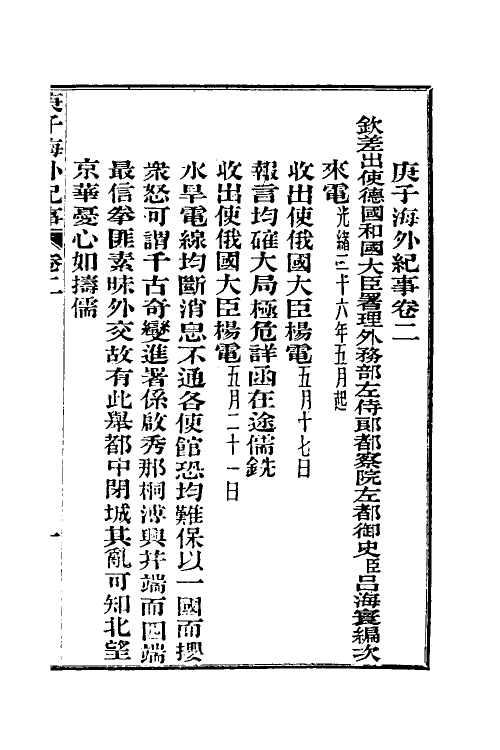 庚子海外紀事卷二
欽差出使德國和國大臣署理外務部左侍郎都察院左都御史臣呂海寰編次
來電光緒二十六年五月起
收出使俄國大臣楊電五月十七日
報言均確大局極危詳函在途儒銑
收出使俄國大臣楊電五月二十一日
水旱電線均斷消息不通各使館恐均難保以一國而攖
衆怒可謂千古奇變進署係啟秀那桐溥興幷端而四端
最信拳匪素昧外交故有此舉都中閉城其亂可知北望
京華憂心如擣儒
庚子海外紀事
卷二
一